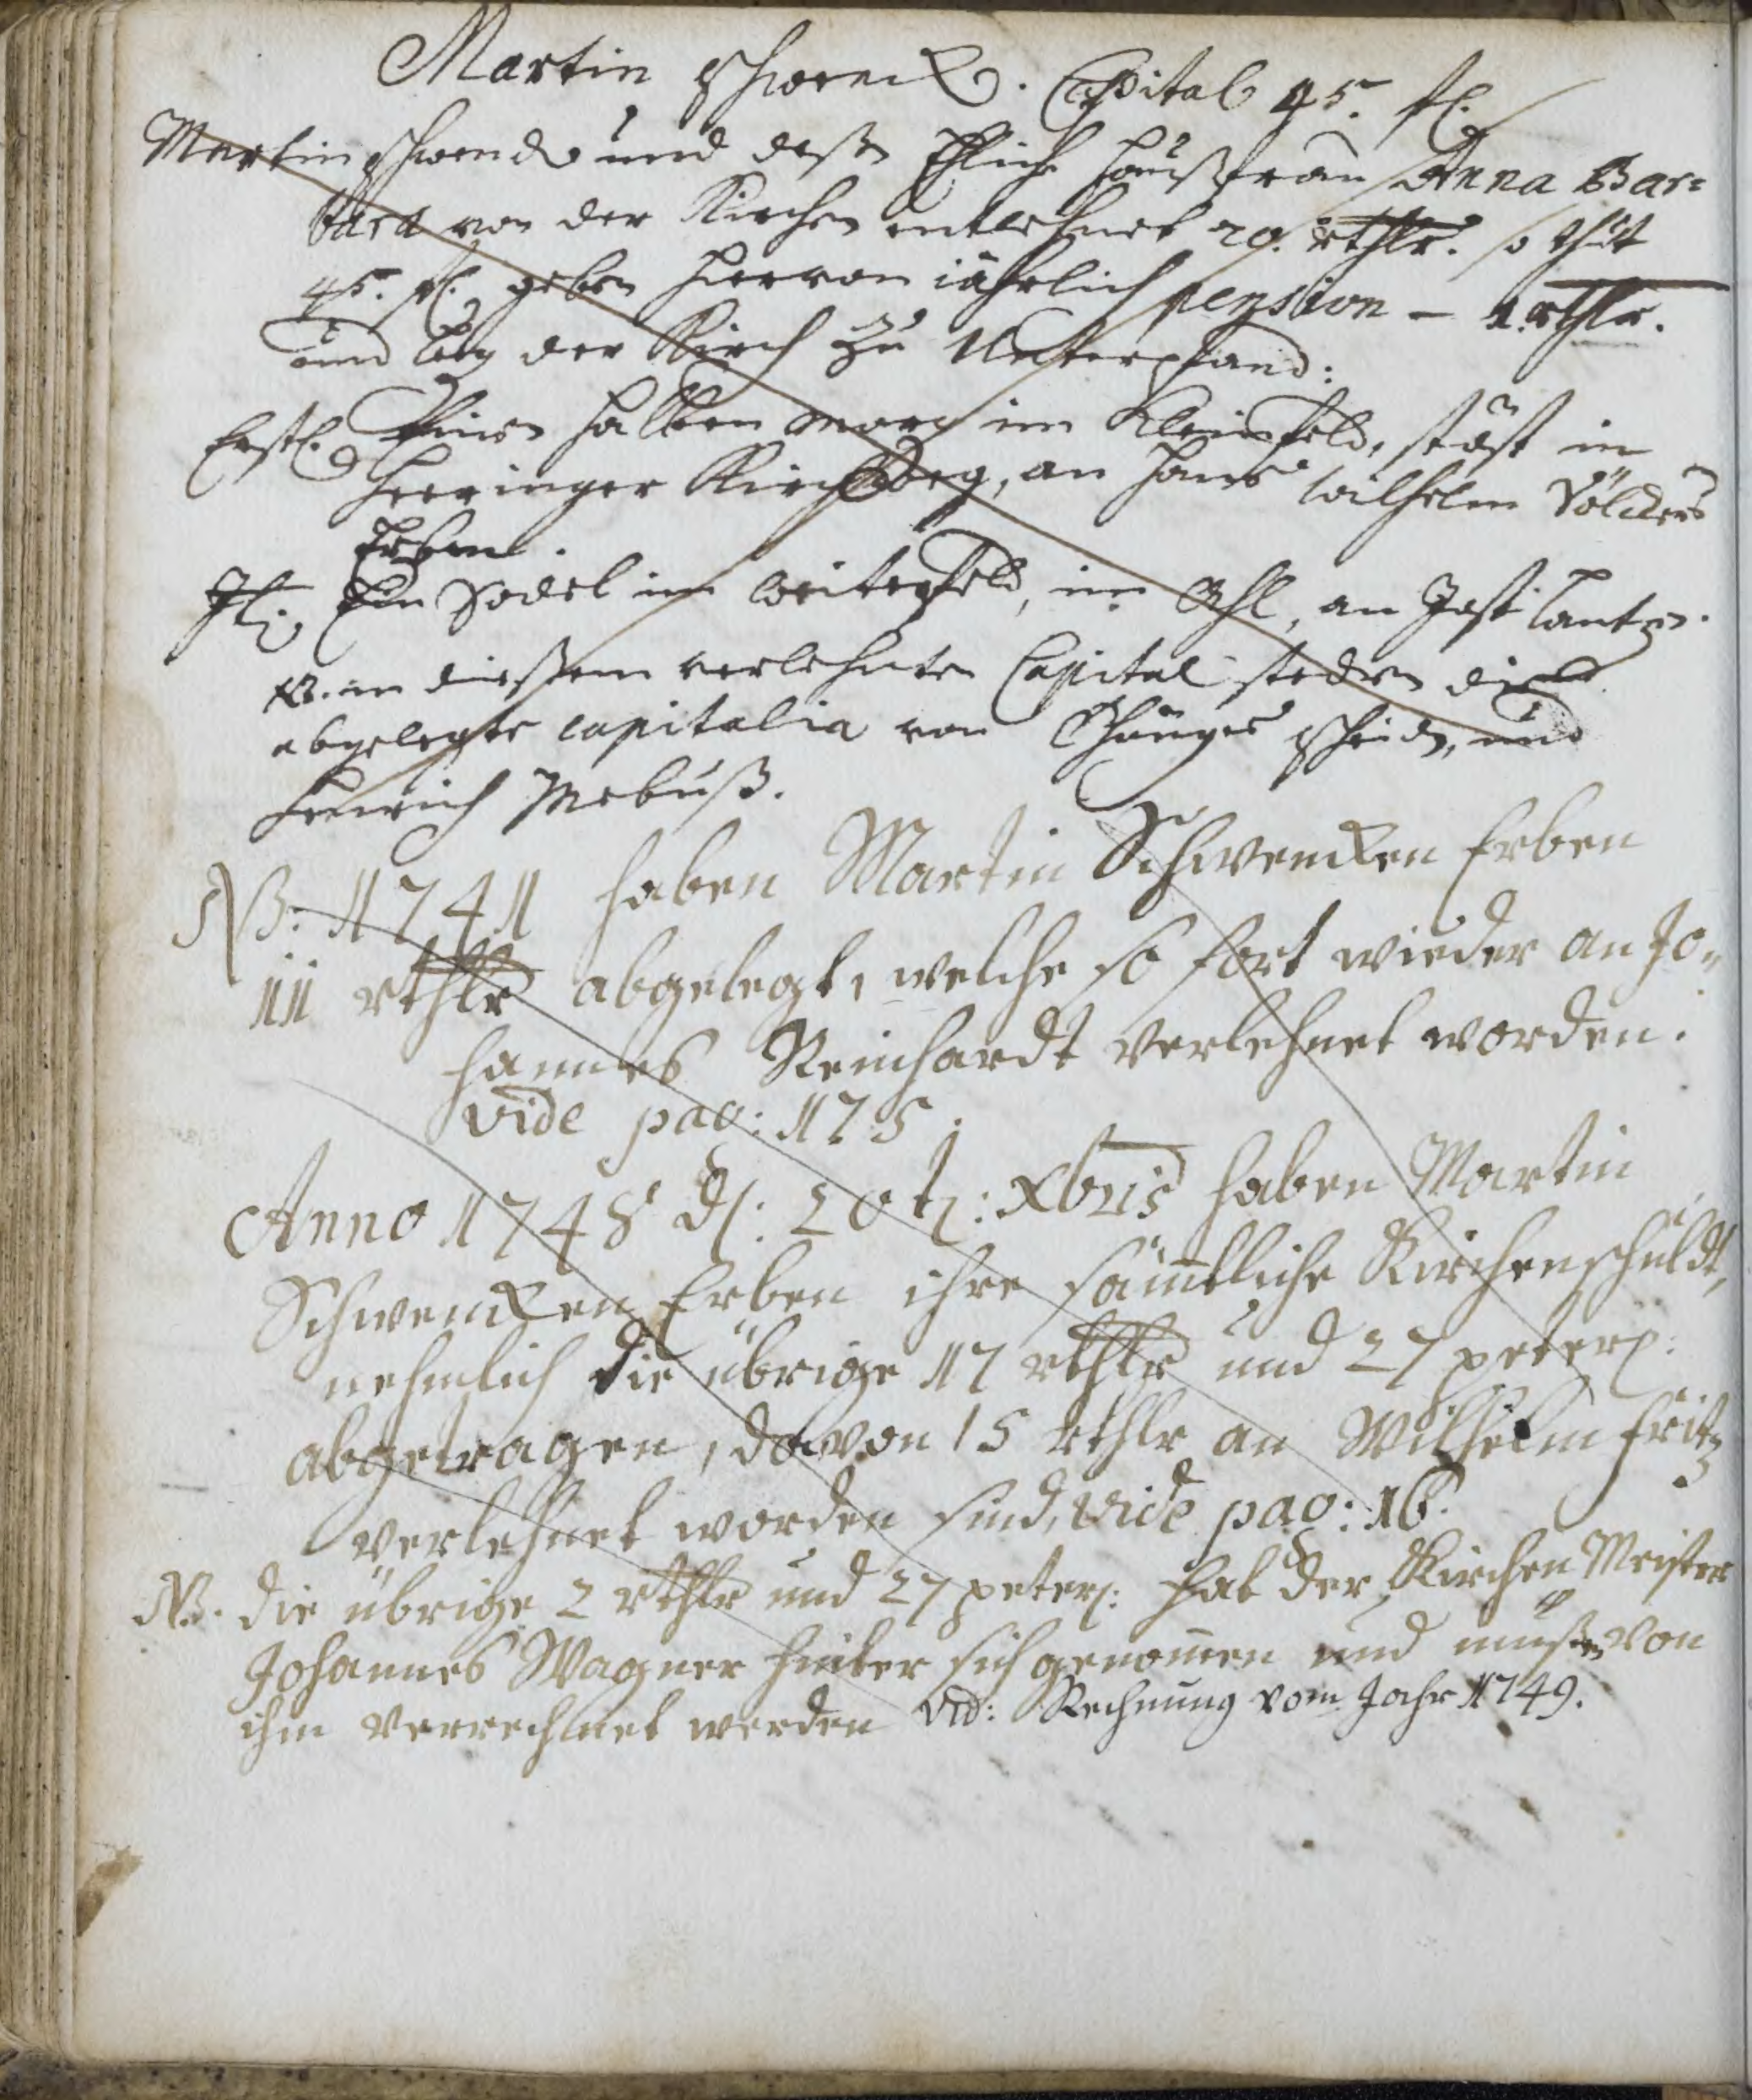 Martin Schwenck. Capital 45. fl.
Martin Schwenck und deßen Ehliche Haußfrau Anna Bar=
bara von der Kirchen entlehnet 20. rthlr. so thut
45. fl. geben hiervon jährlich pension – 1. rthlr.
und leg der Kirch zu Unterpfand:
Erstl. Einen halben Morg im Kleinfeld, stöst in
Heeringer Kirchweg, an Hans Wilhelm Völckers
Erben.
It. Ein Sodel im Weiterfeld, im Ohl, an Jost Lantzen.
NB. in dießem verlehnten Capital stecken die
abgelegte capitalia von Schmid, und
Henrich Mebuß.
NB. 1741 haben Martin Schwencken Erben
11 rthlr abgelegt, welche so fort wieder an Jo=
hannes Reinhardt verlehnet worden.
vide pag: 175.
Anno 1748 d: 20t: Xbris haben Martin
Schwencken Erben ihre sämtliche Kirchenschuldt,
nehmlich die übrige 17 rthlr und 27 peterm:
abgetragen, davon 15 rthlr an Wilhelm Fritz
verlehnet worden sind, vide pag: 16.
NB. die übrige 2 rthlr und 27 peterm: hat der Kirchen Meister
Johannes Wagner hinter sich genomen und müßen von
ihm verrechnet werden vid: Rechnung vom Jahr 1749.